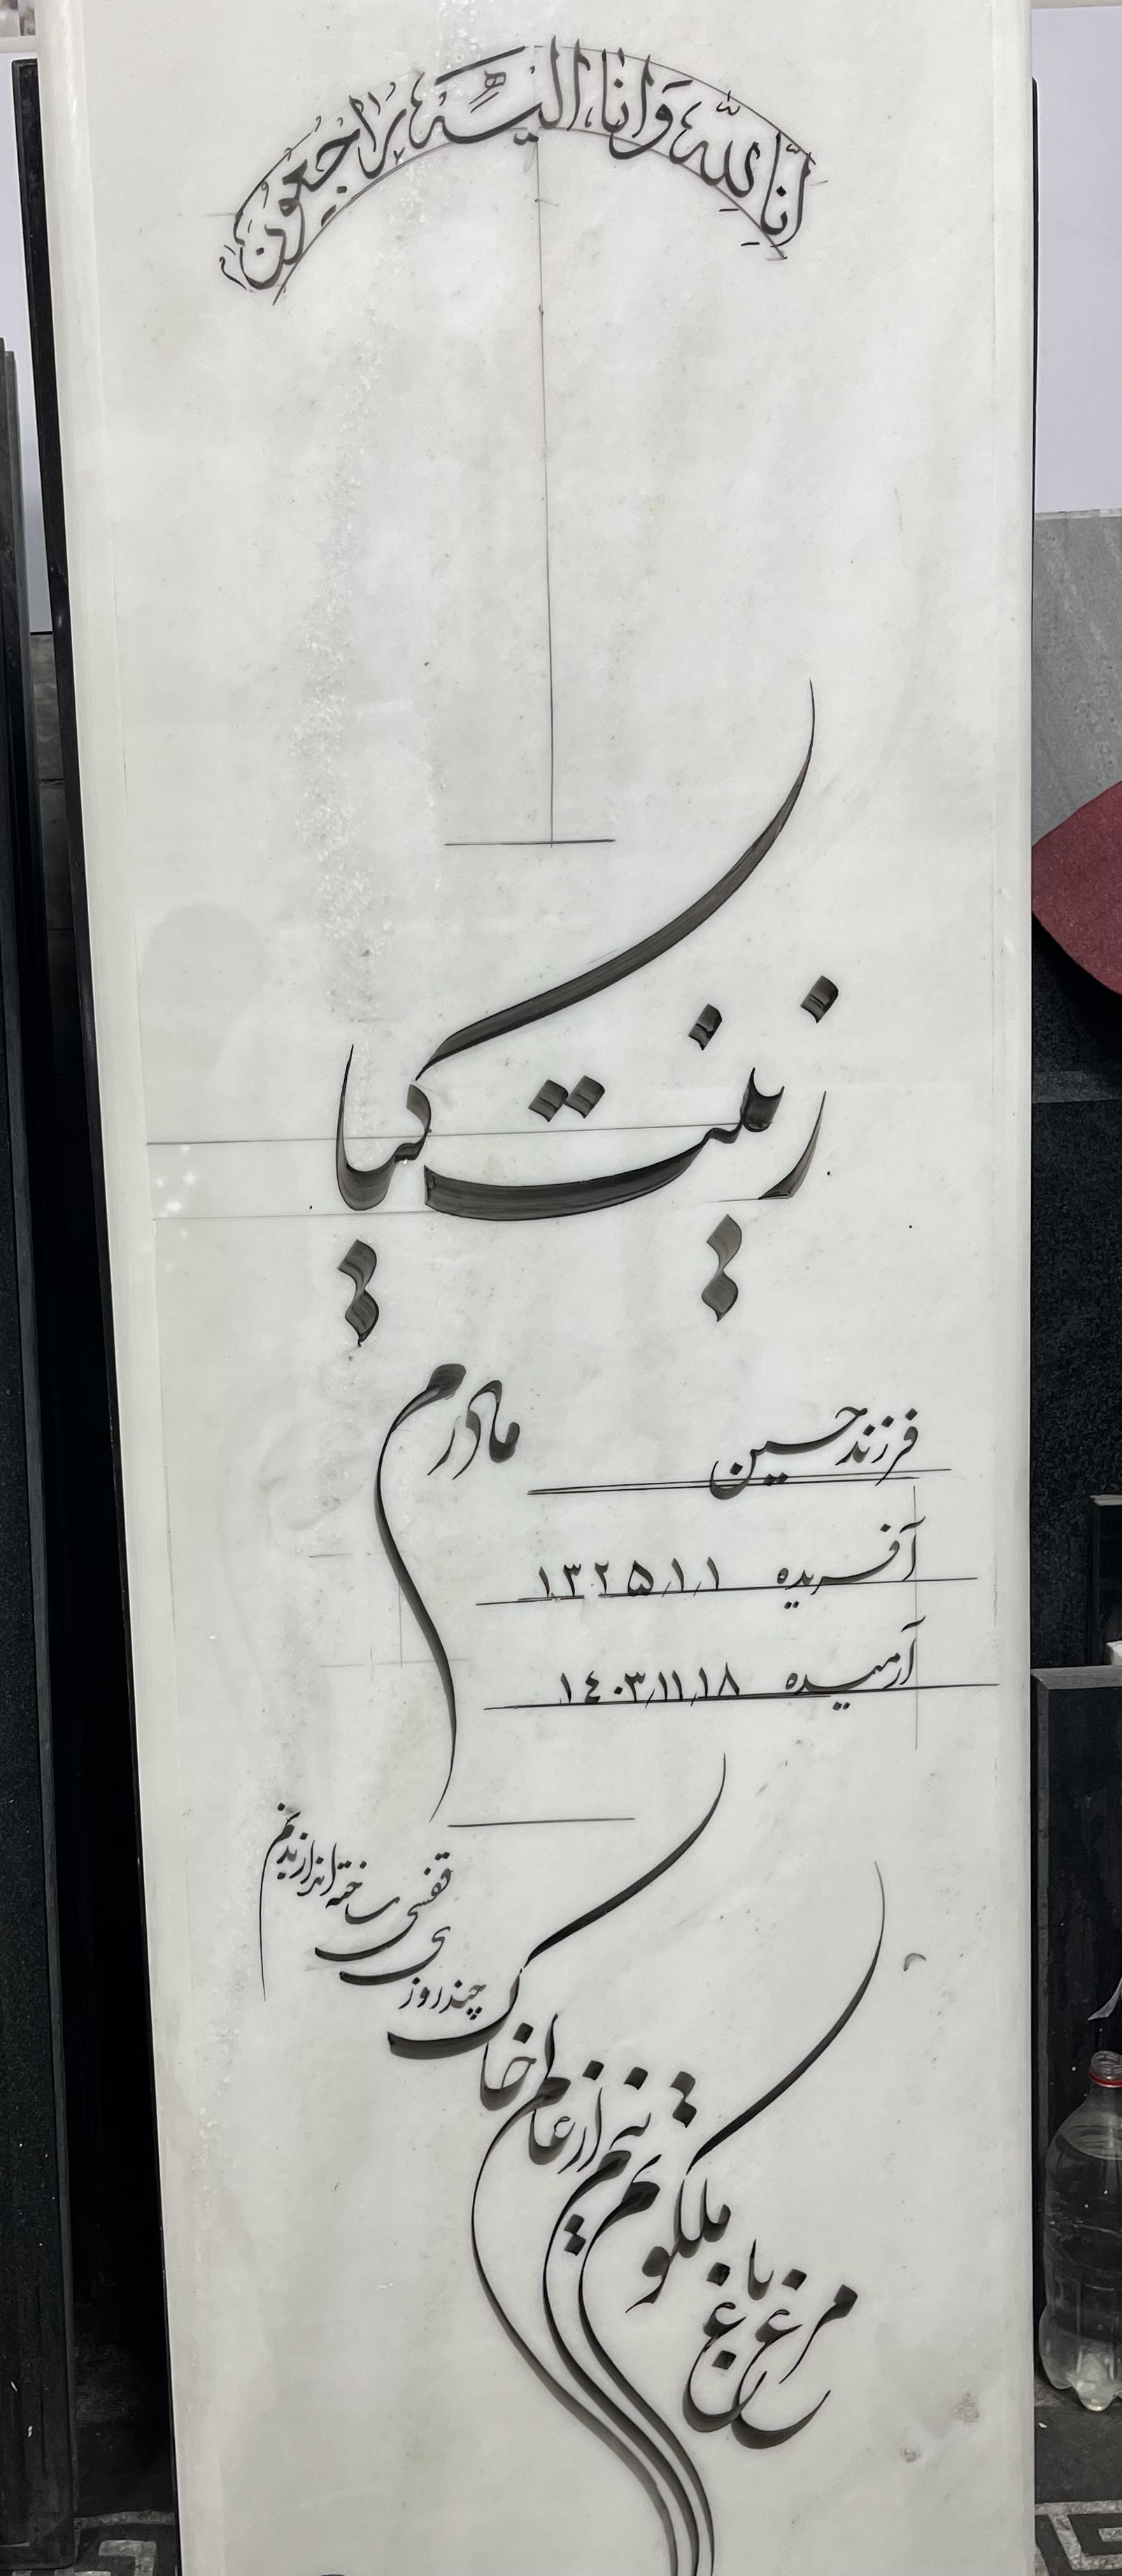 إِنَّا لِلّهِ وَاِنّا اِلَیْهِ رَاجِعُونَ
زینت کیا
مادرم
فرزند حسین
آفریده ۱۳۲۵/۱/۱
آرمیده ۱۴۰۳/۱۱/۱۸
مرغ باغ ملکوتم نیم از عالم خاک
چند روزی قفسی ساخته اند از بدنم